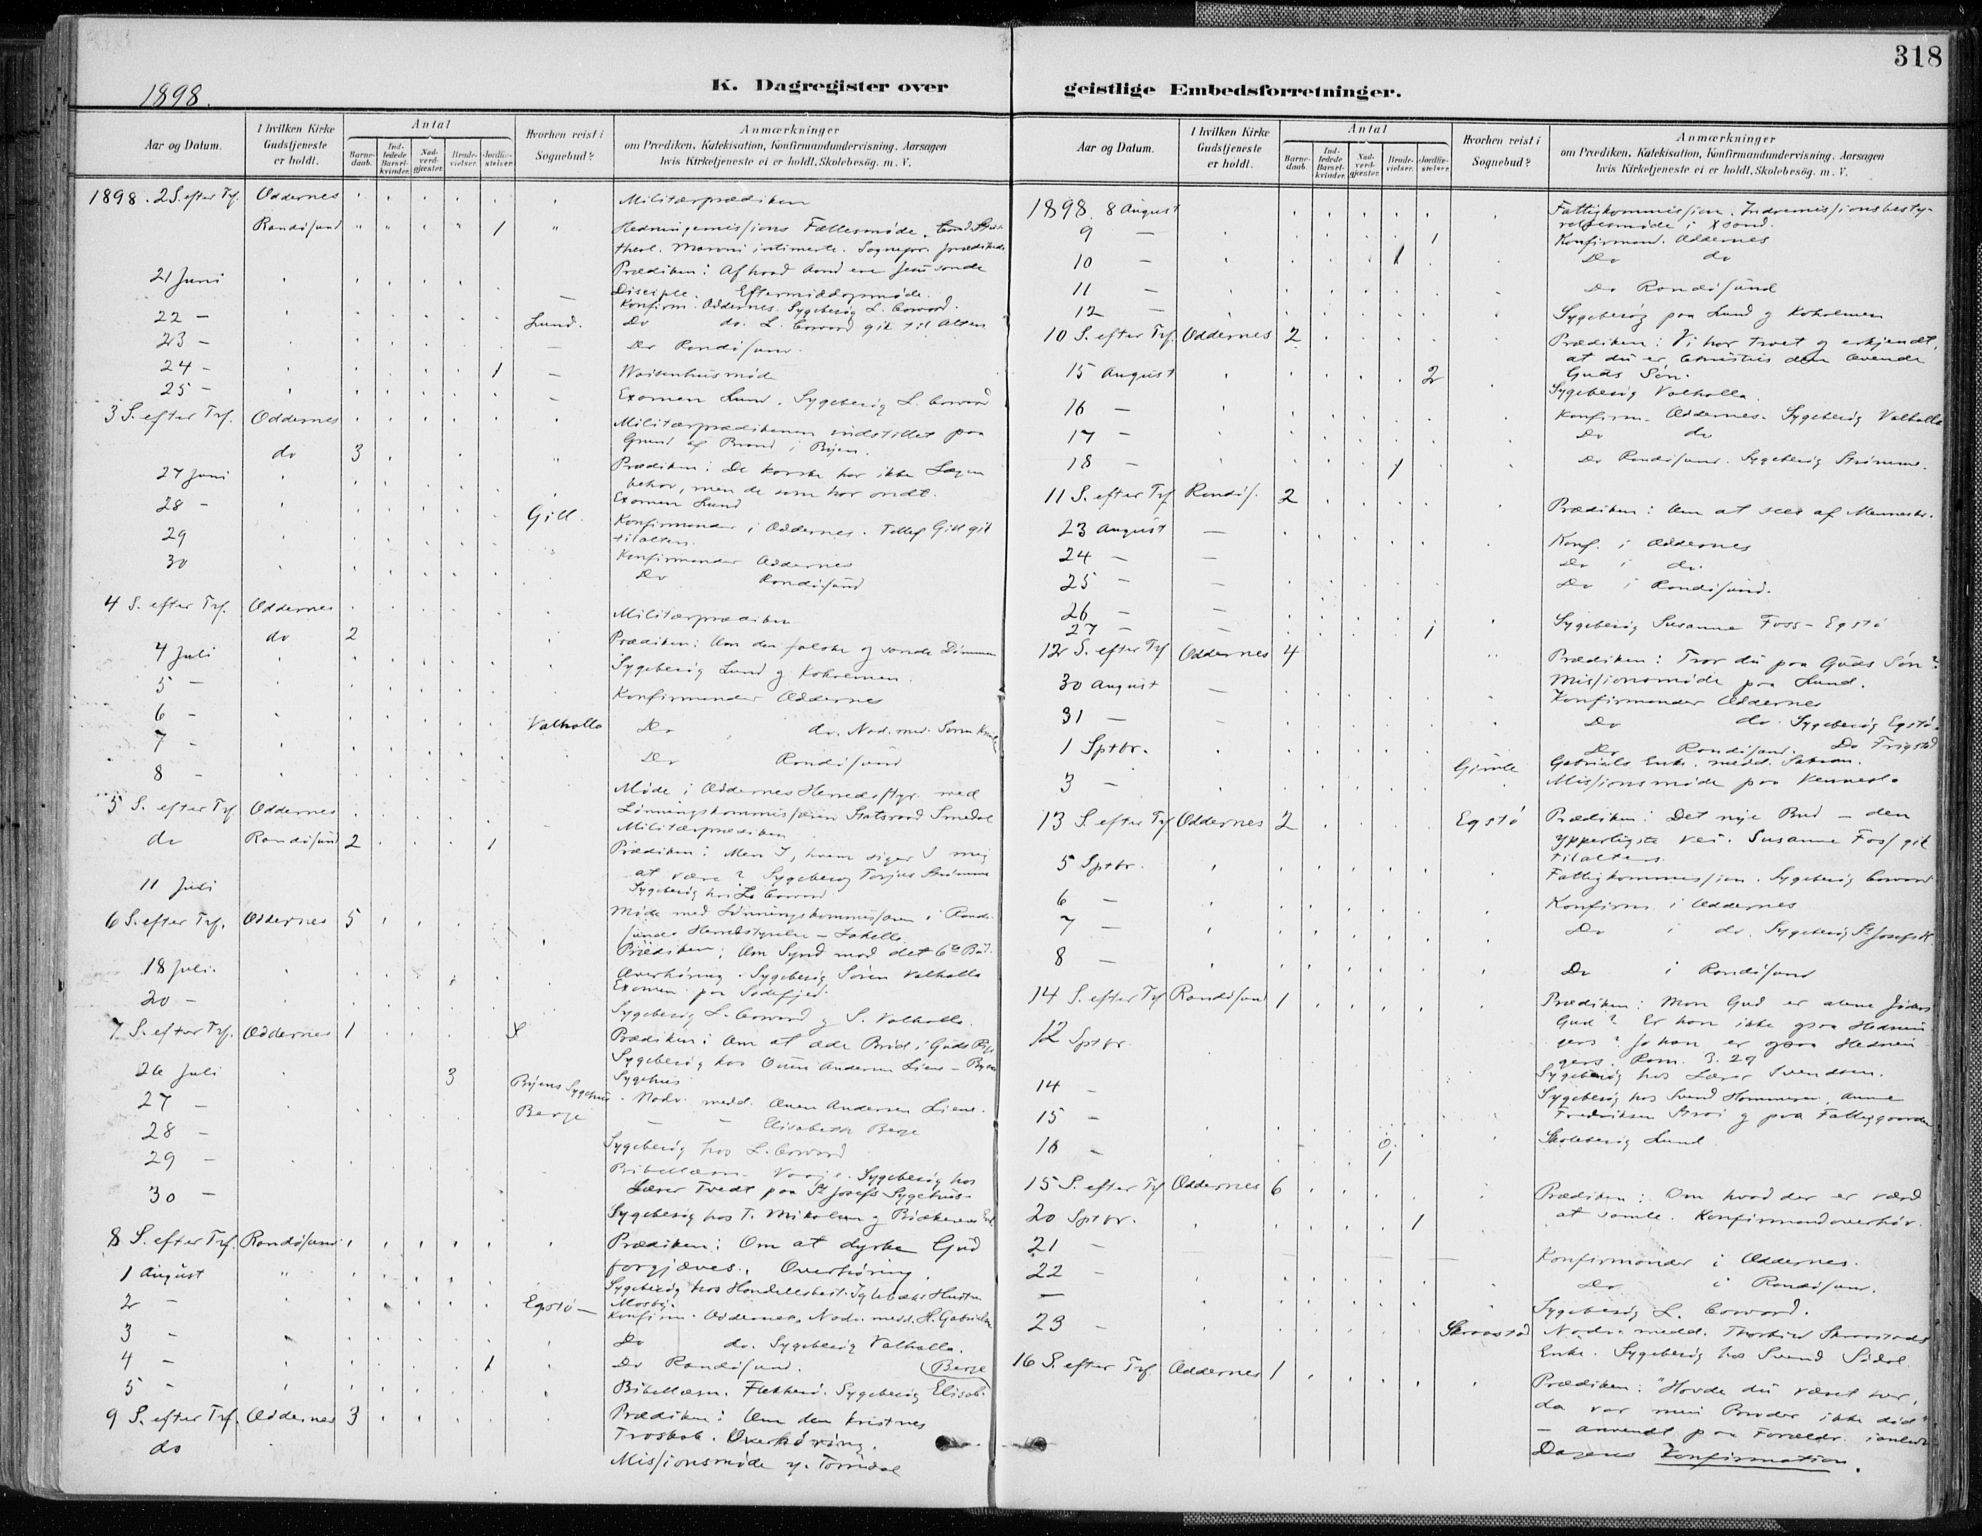 318
K. Dagregister over geistlige Embedsforretninger.
1898.
Aar og Datum.
I hvilken Kirke Gudstjeneste er holdt.
Antal
Barnedaab.
Indledede Barselkvinder.
Nadverdgjæster.
Brudevielser.
Jordfæstelser.
Hvorhen reist i Sognebud?
Anmærkninger
om Prædiken, Katekisation, Konfirmandundervisning. Aarsagen
hvis Kirketjeneste ei er holdt. Skolebesøg. m. V.
1898. 2 S. efter Trf. Oddernes Militærprædiken
Randøsund 1 Hedningemissions Fællesmøde.
Prædiken: Af hvad Aand ere Jesu sande
21 Juni Disciple. Eftermiddagsmøde.
Konfirm. Oddernes. Sygebesøg L. Corvard.
22 – Lund. Do do. L. Corvard gik til Alters
23 – Do Randøsund.
24 – 1 Waisenhusmøde
25 – Examen Lund. Sygebesøg L. Corvard
3 S. efter Trf. Oddernes Militærprædikenen indstillet paa
Grund af Brand i Byen.
do 3 Prædiken: De karske har ikke Lægen
27 Juni behov, men de som har ondt.
28 – Examen Lund
Gill. Konfirmander i Oddernes. Tellef Gill gik
29 til alters.
30 Konfirmander Oddernes
Do Randøsund
4 S. efter Trf. Oddernes Militærprædiken
do 2 Prædiken: Om den falske og sande Dømmen
4 Juli Sygebesøg Lund og Kokolmen.
5 – Konfirmander Oddernes
6 – Valhalla Do do. Nad. med. Søren
7 – Do Randøsund
8 – Møde i Oddernes Herredsstyr. med
Lønningskommissæren Statsraad Smedal
5 S. efter Trf. Oddernes Militærprædiken
do Randøsund 2 1 Prædiken: Men I, hvem siger I mig
at være? Sygebesøg Torjus Strømme
11 Juli Sygebesøg hos L. Corvard
6 S. efter Trf. Oddernes 5 Møde med Lønningskommissæren i Randøsunds
Herredsstyrelse
Prædiken: Om Synd mod det 6te Bud.
18 Juli. Overhøring. Sygebesøg Søren Valhalla
20 – Examen paa Sødefjed.
Sygebesøg L. Corvard og S. Valhalla.
7 S. efter Trf. Oddernes 1 Prædiken: Om at æde Brød i Guds Rige
26 Juli 3 Sygebesøg hos Ouen Andersen Liene – Byens
Sygehus
27 – Byens Sygehus Nadv. medd. Ouen Andersen Liene.
28 – Berge – – Elisabeth Berge
29 – Sygebesøg hos L. Corvard
Bibellæsn. Vaagt. Sygebesøg hos
30 – Lærer Tvedt paa St Josefs Sygehus.
Sygebesøg hos T. Mikalsen og
8 S. efter Trf. Randøsund Prædiken: Om at dyrke Gud
1 August forgjæves. Overhøring.
2 – Egstø – Konfirm. Oddernes, Nadv. medd. H. Gabrielsen
3 – Do do. Sygebesøg Valhalla.
4 – 1 Do Randøsund. (Berge
5 – Bibellæsn. Flekkerø. Sygebesøg Elisab.
9 S. efter Trf. Oddernes 3 Prædiken: Om den kristnes
do Troskab. Overhøring.
Missionsmøde
Aar og Datum.
I hvilken Kirke Gudstjeneste er holdt.
Antal
Barnedaab.
Indledede Barselkvinder.
Nadverdgjæster.
Brudevielser.
Jordfæstelser.
Hvorhen reist i Sognebud?
Anmærkninger
om Prædiken, Katekisation, Konfirmandundervisning. Aarsagen
hvis Kirketjeneste ei er holdt. Skolebesøg. m. V.
1898. 8 August Fattigkommission. Indremissionsbestyrelsesmøde
i Xsand.
9 – 1 Konfirmand. Oddernes
10 – 1 Do do
11 – Do Randøsund
12 – Sygebesøg paa Lund og Kokolmen
10 S. efter Trf. Oddernes 2 Prædiken: Vi har troet og erkjendt,
at du er Christus den levende
15 August 2 Guds Søn.
Sygebesøg Valhalla.
16 – Konfirm. Oddernes. Sygebesøg Valhalla
17 – Do do
18 – 1 Do Randøsund. Sygebesøg Strømme.
11 S. efter Trf. Randøs. 2 Prædiken: Om at sees af Mennesker.
23 August – Konf. i Oddernes
24 – – Do i do
25 – – Do i Randøsund.
26 – –
27 – – 1 Sygebesøg Susanne Foss – Egstø
12 S. efter Trf Oddernes 4 Prædiken: Tror du paa Guds Søn?
30 August – Missionsmøde paa Lund.
Konfirmander Oddernes
31 – Do do. Sygebesøg Egstø.
1 Sptbr. Do Randøsund. Do Frigstad
3 – Gimle Gabriels Enke. medd.
Missionsmøde paa
13 S. efter Trf Oddernes 2 Egstø Prædiken: Det nye Bud – den
ypperligste vei. Susanne Foss gik
5 Sptbr. til alters.
Fattigkommission. Sygebesøg Corvard
6 – Konfirm. i Oddernes
7 – Do i do. Sygebesøg St Josefs H.
8 – Do i Randøsund
14 S. efter Trf Randøsund 1 Prædiken: Mon Gud er alene Jøders
Gud? Er han ikke ogsaa Hedningers?
12 Sptbr. Jo han er ogsaa Hedningers.
Rom. 3. 29
14 – Sygebesøg hos Lærer Svendsen.
Sygebesøg hos Svend Hommeren, Anne
15 – Fredriksen og paa Fattiggaarden
16 – Skolebesøg Lund
15 S. efter Trf Oddernes 6 Prædiken: Om hvad der er værd
20 Sptbr. 1 at samle. Konfirmandoverhør.
21 – Konfirmander i Oddernes.
22 – Do i Randøsun.
– Sygebesøg L. Corvard.
23 – Skraastad Nadv. medd. Skraastads
Enke. Sygebesøg hos Svend Sødal.
16 S. efter Trf. Oddernes 1 Prædiken: "Havde du været her,
da var min Broder ikke død"
– anvendt paa Forældr.
Dagens Konfirmation.